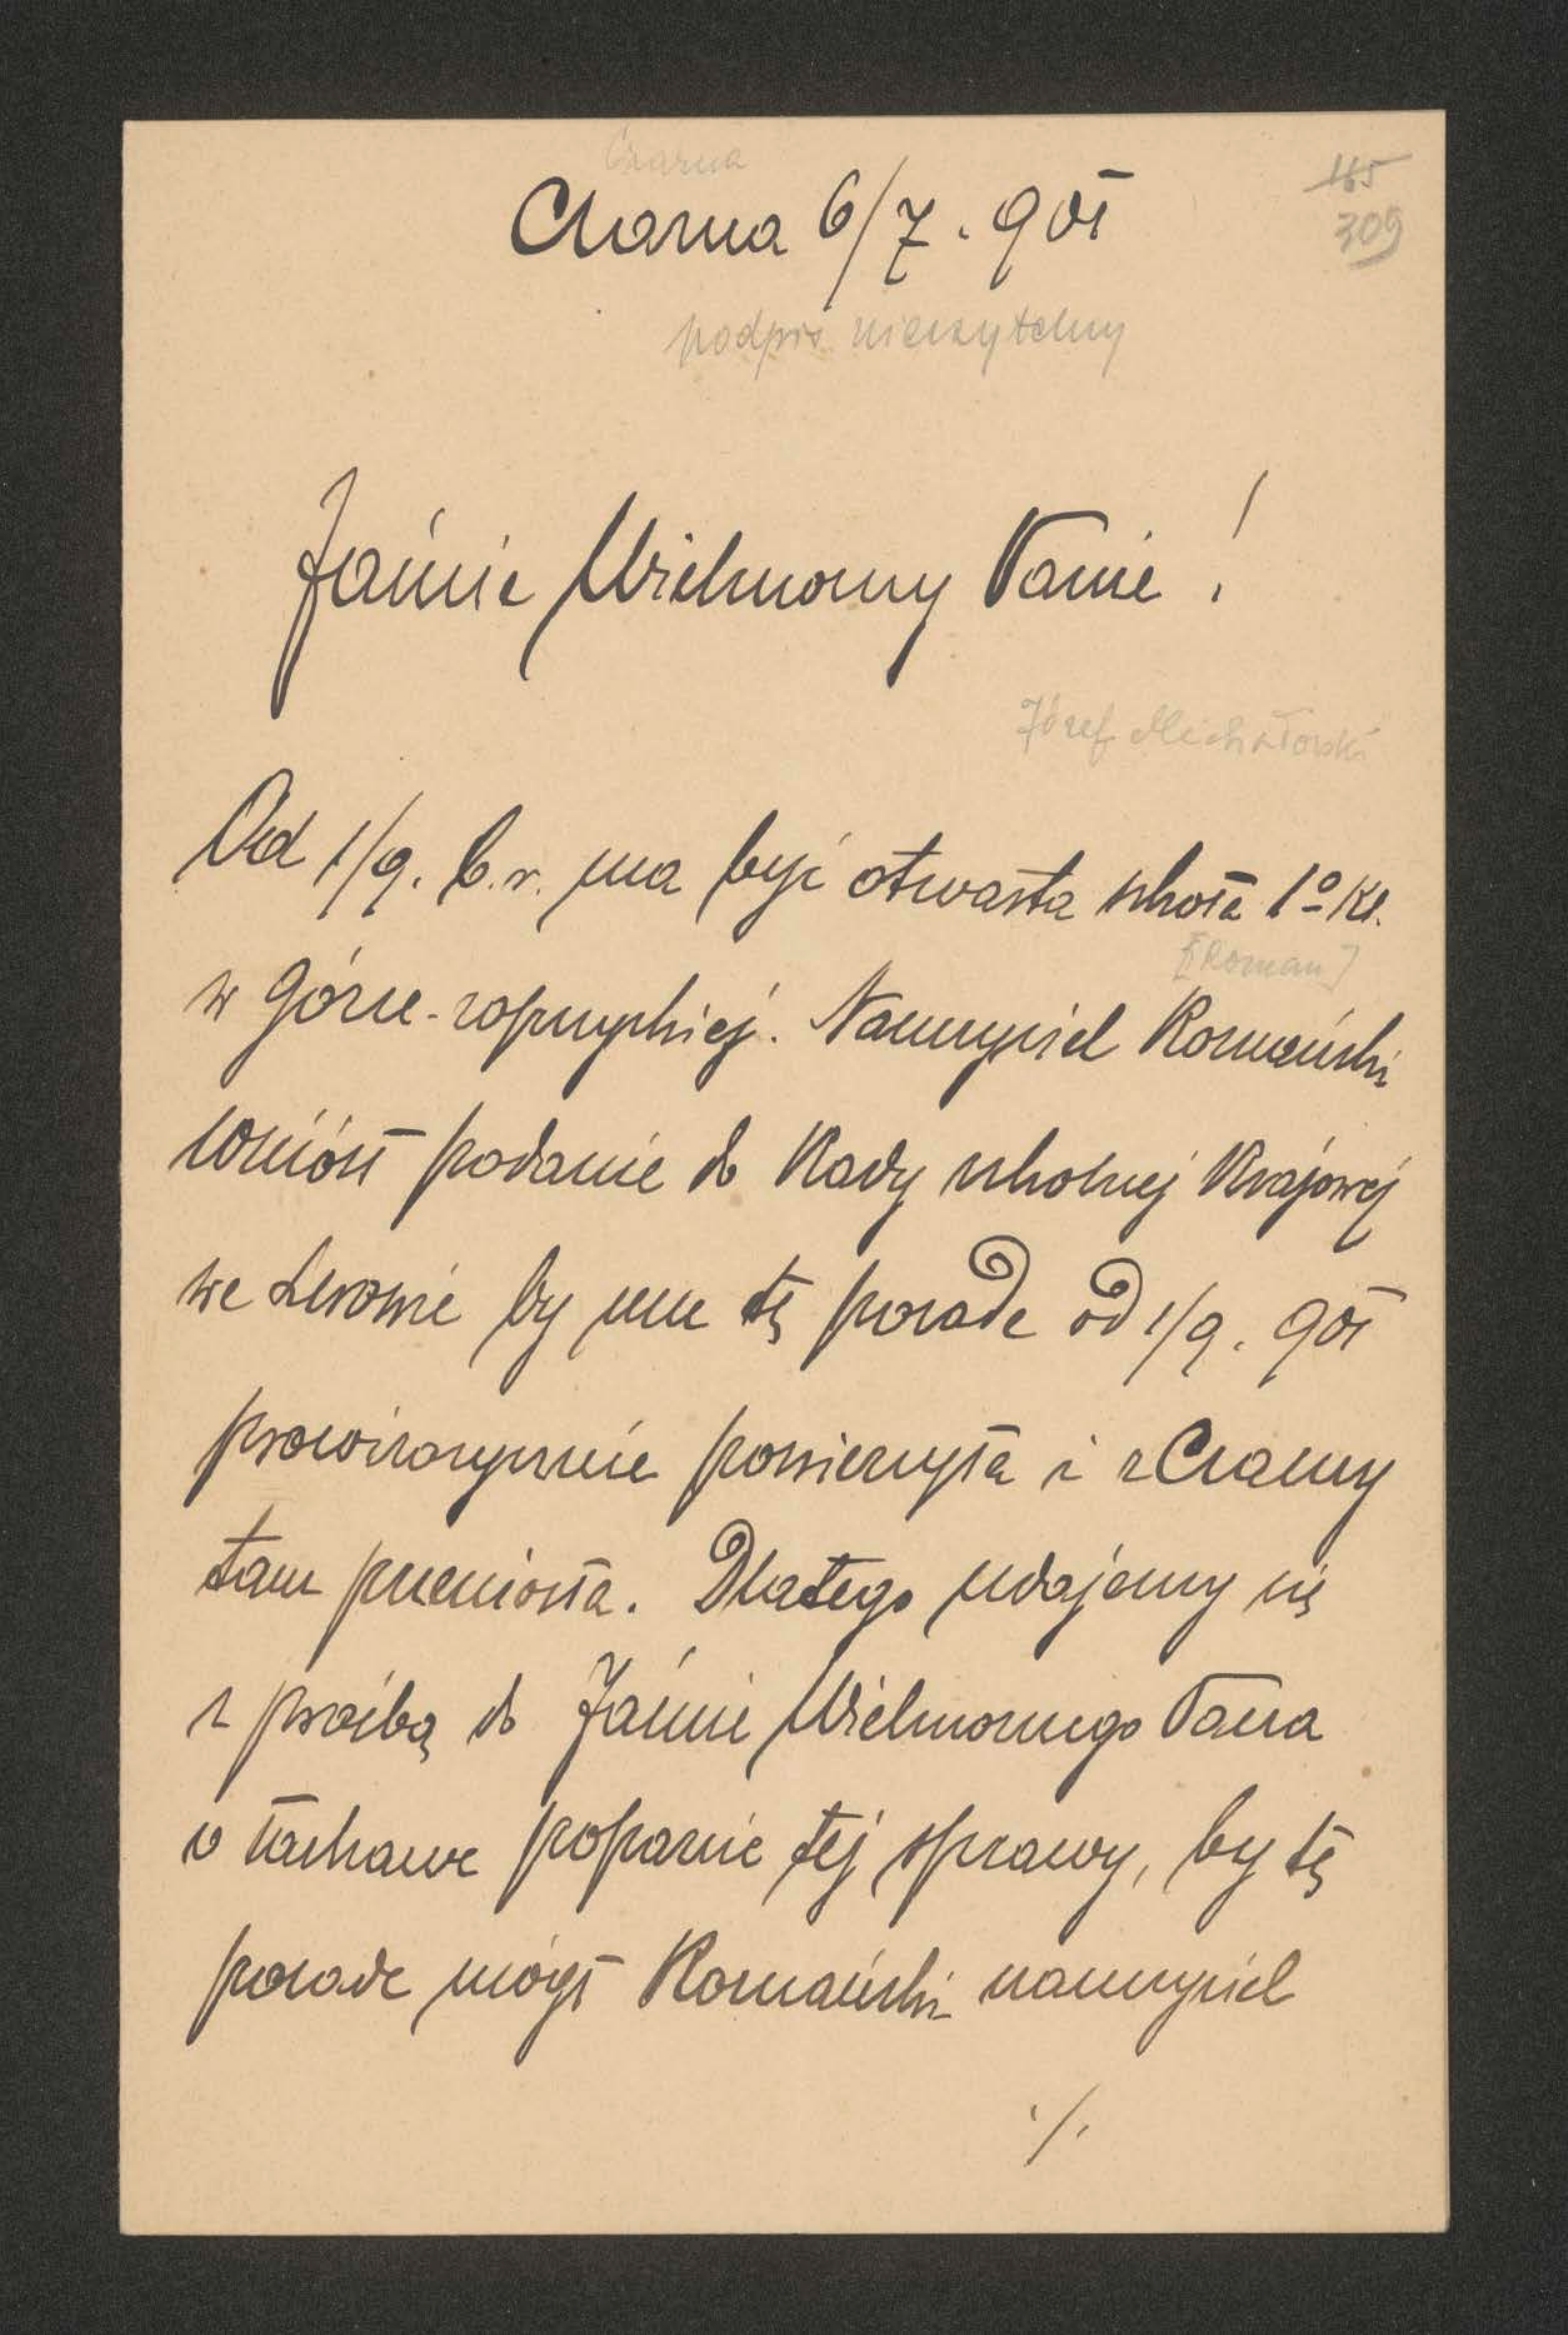 Czarna
Czarna 6/7. 901
165
309
podpis nieczytelny
Jaśnie Wielmożny Panie!
Józef Michałowski
Od 1/9. b.r. ma być otwarta szkoła 1º kl.
[Roman]
w Górze-ropczyckiej. Nauczyciel Romański
wniósł podanie do Rady szkolnej Krajowej
we Lwowie by mu tę posadę od 1/9. 901
prowizorycznie powierzyła i z Czarny
tam przeniosła. Dlatego udajemy się
z prośbą do Jaśnie Wielmożnego Pana
o łaskawe poparcie tej sprawy, by tę
posadę mógł Romański nauczyciel
./.